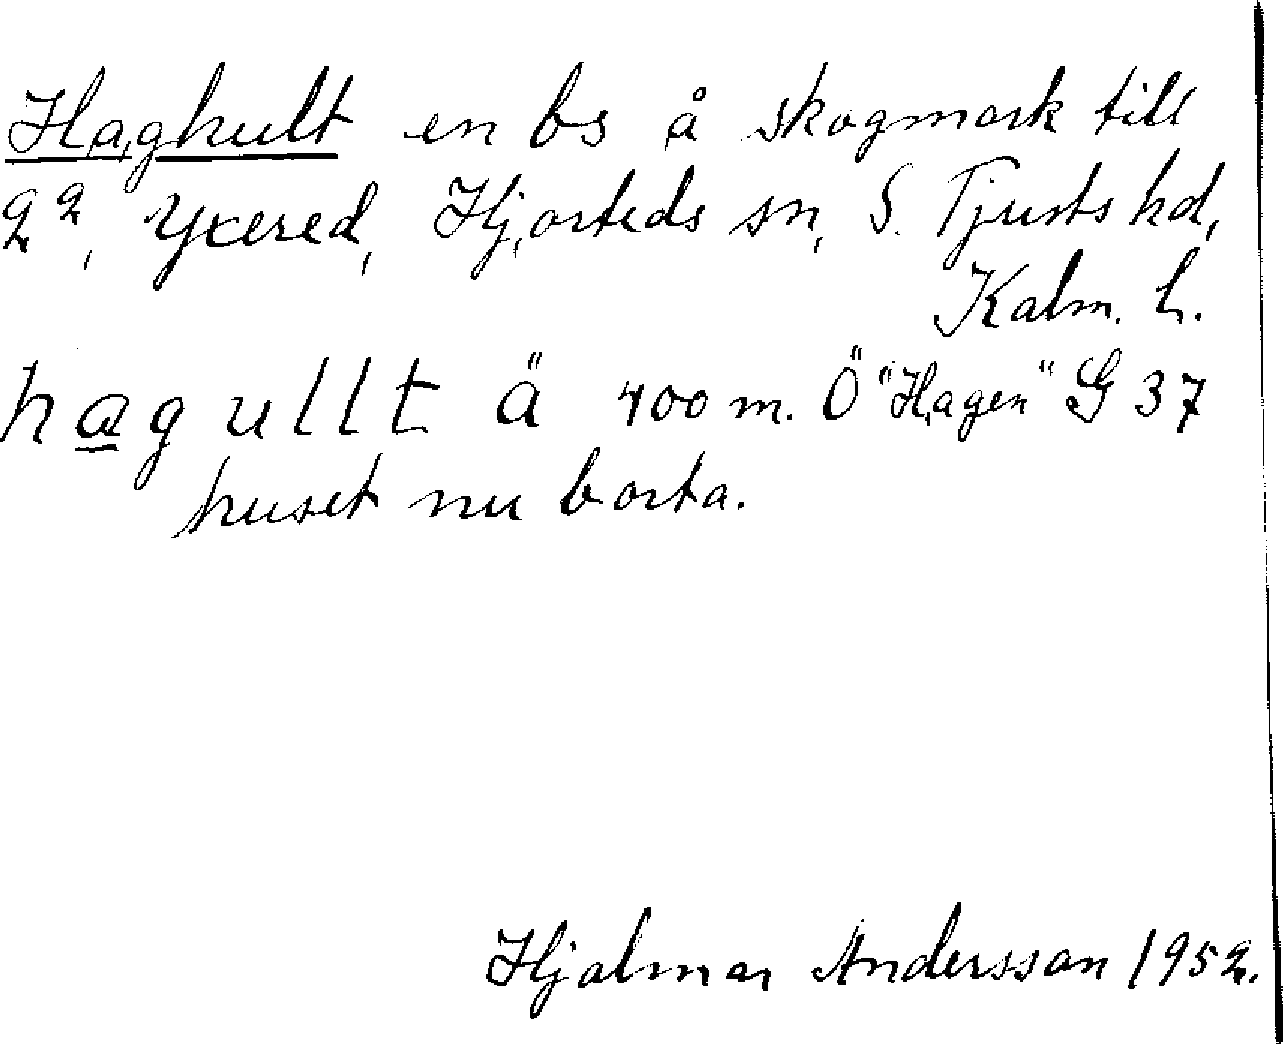 Haghult en bs å skogmark till
2², Yxered, Hjorteds sn, S. Tjusts hd,
Kalm. L.
hagullt ä 400 m. Ö "Hagen" G 37
huset nu borta.
Hjalmar Andersson 1952.